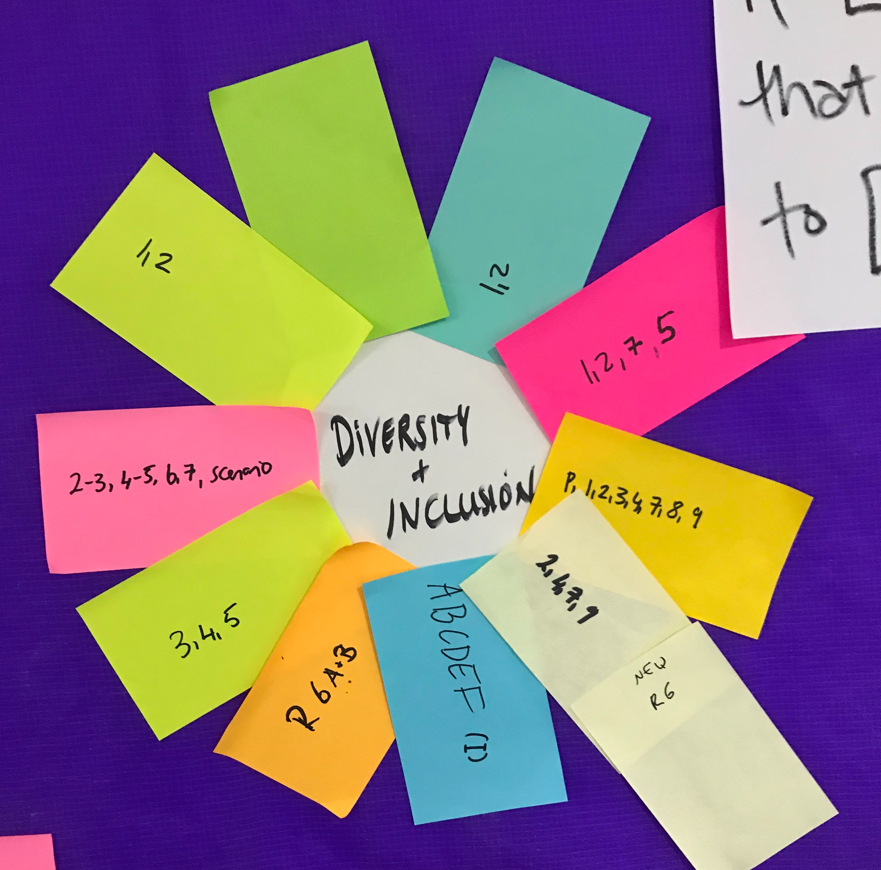 that
to [
1,2
1,2
1,2,7,5
DIVERSITY
+
INCLUSION
2-3, 4-5, 6,7, scenario
P, 1,2,3,4,7,8,9
2,4,7,9
3,4,5
R 6 A+B
ABCDEF (I)
NEW
R6